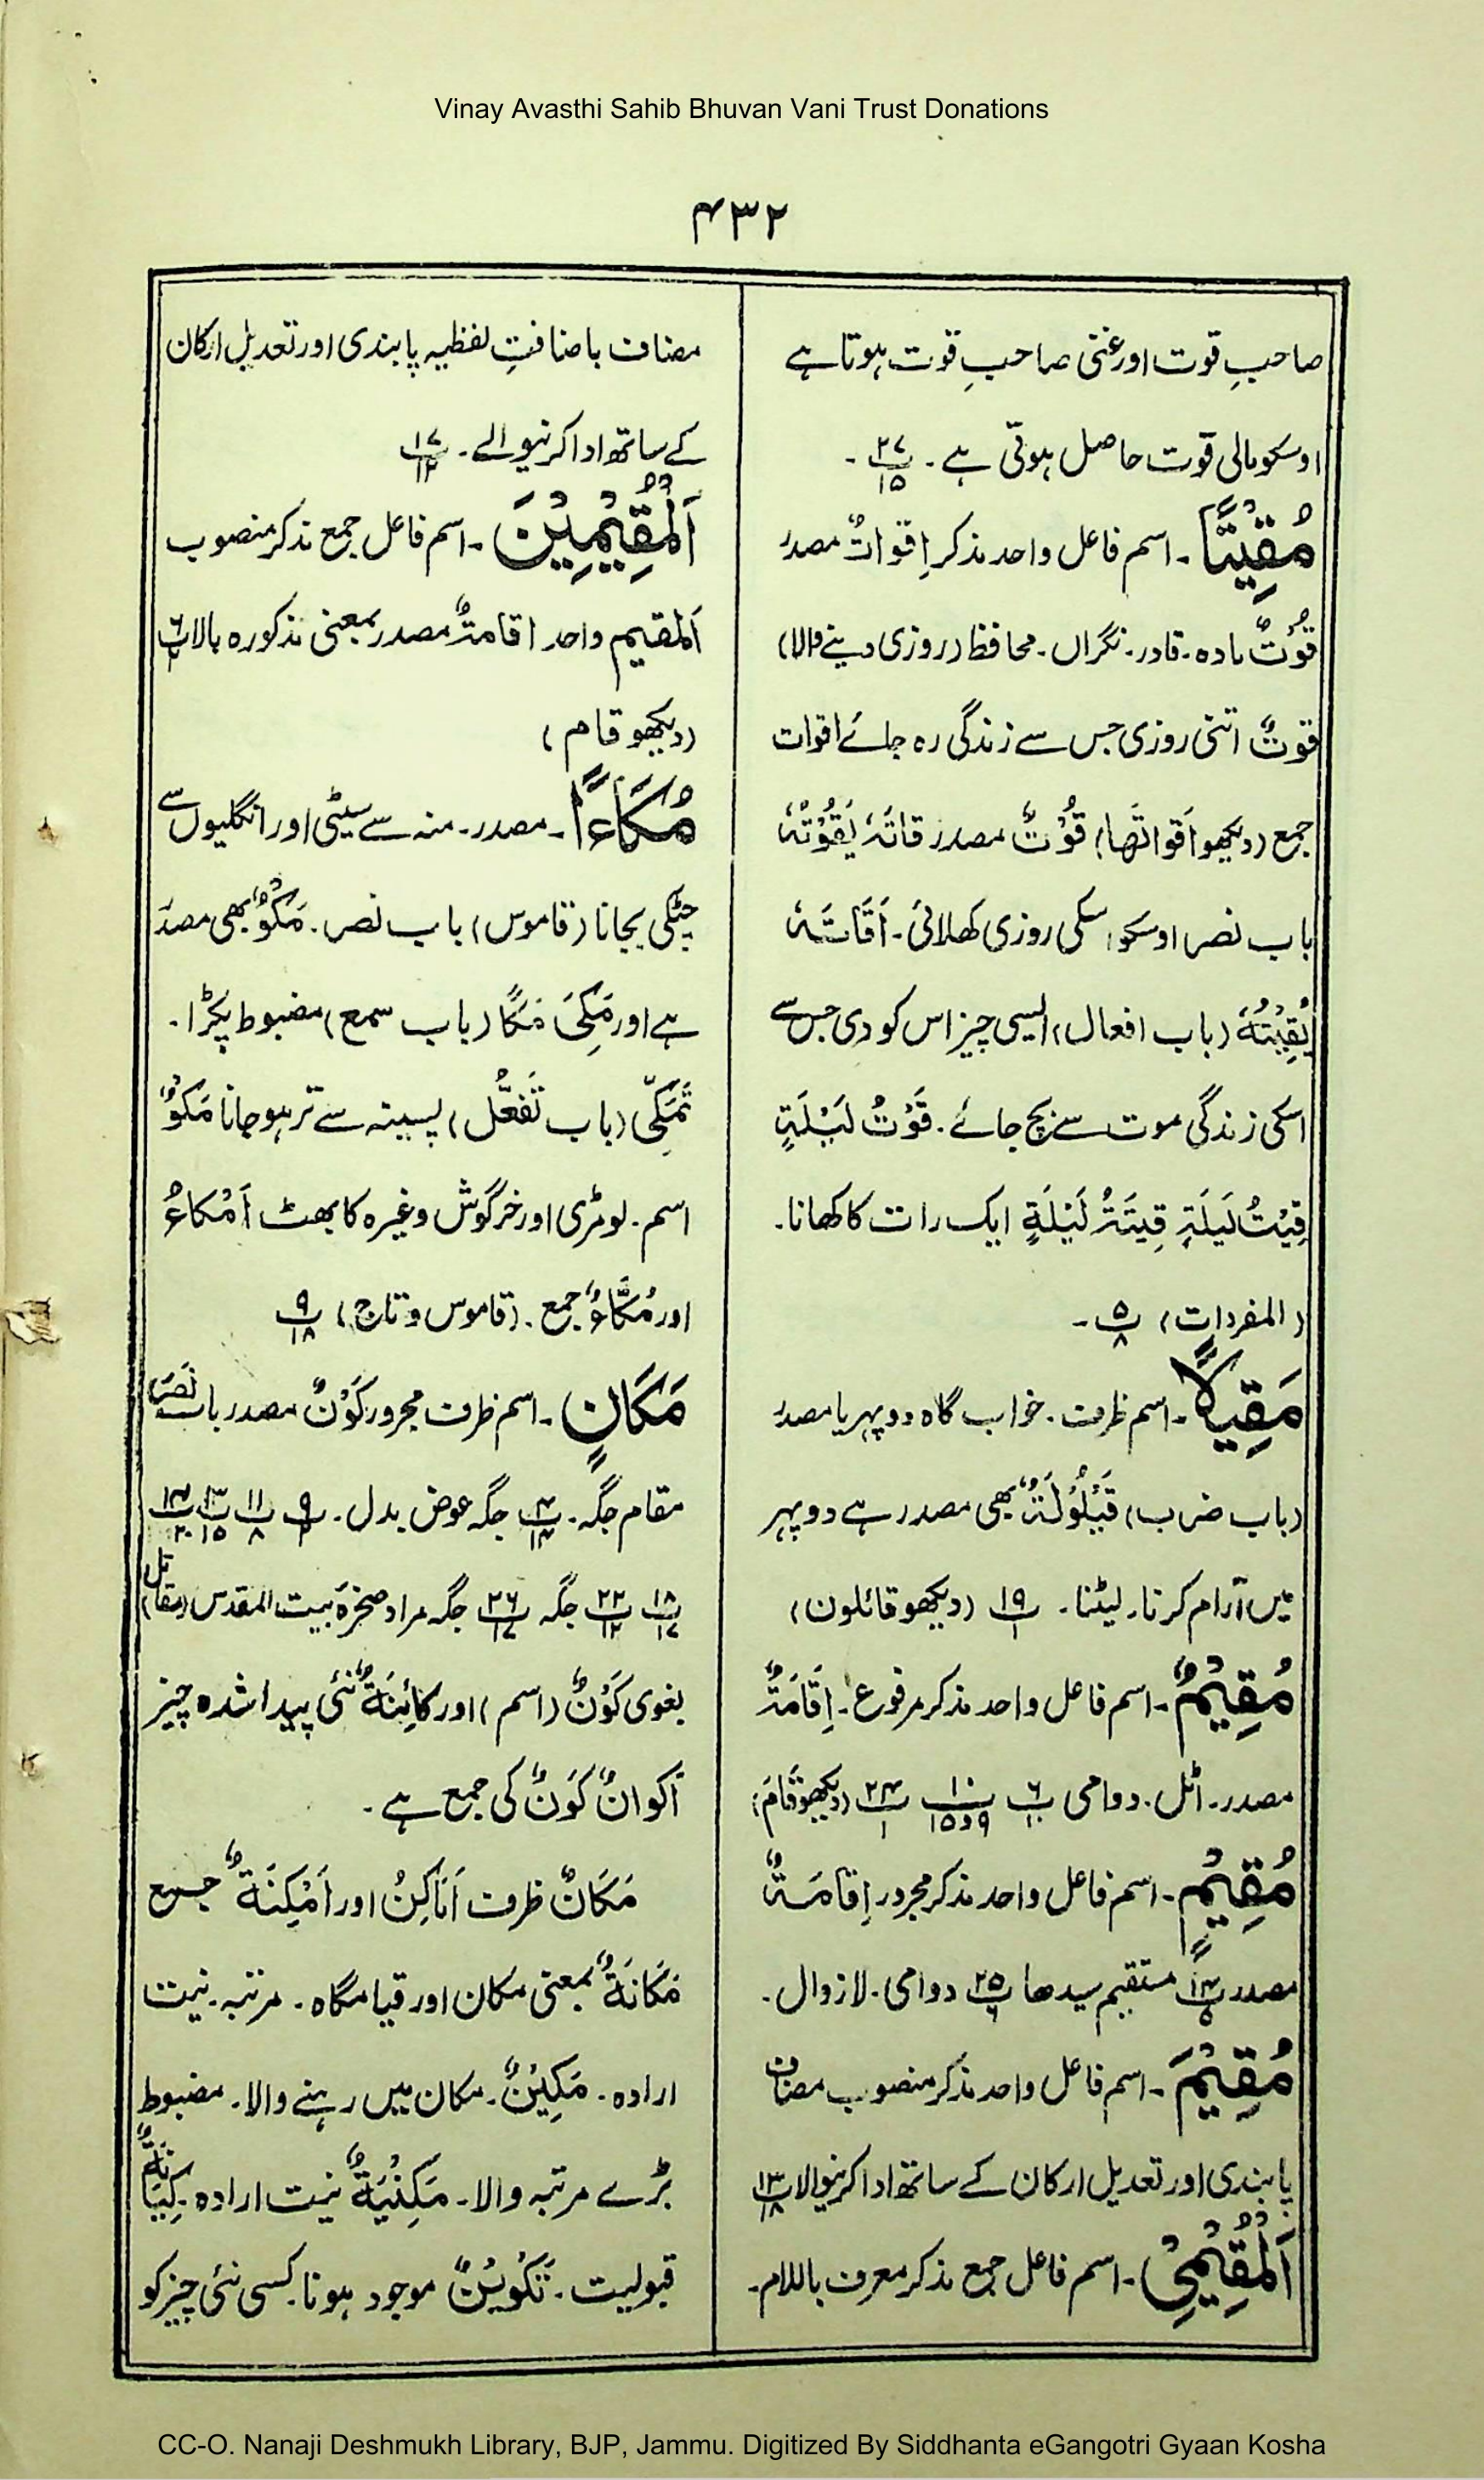 Vinay Avasthi Sahib Bhuvan Vani Trust Donations
۴۳۲
صاحبِ قوت اور غنی صاحبِ قوت ہوتا ہے
اوسکو مالی قوت حاصل ہوتی ہے۔ پ۲۷/۱۵۔
مُقِيْتًا۔ اسم فاعل واحد مذکر اِقواتٌ مصدر
قُوْتٌ مادہ۔ قادر۔ نگراں۔ محافظ (روزی دینے والا)
قوتٌ اتنی روزی جس سے زندگی رہ جائے اقوات
جمع (دیکھو اَقواتَھا) قُوْتٌ مصدر قَاتَہٗ یَقُوْتُہٗ
باب نصر اوسکو اسکی روزی کھلائی۔ اَقَاتَہٗ
یُقِیْتُہٗ (باب افعال) ایسی چیز اس کو دی جس سے
اسکی زندگی موت سے بچ جائے۔ قُوْتُ لَیْلَةٍ
قِیْتُ لَیلَةٍ قِیتَةُ لَیْلَةٍ ایک رات کا کھانا۔
(المفردات) پ۵/۸۔
مَقِيلًا۔ اسم ظرف۔ خواب گاہ دوپہر یا مصدر
(باب ضرب) قَیْلُوْلَةٌ بھی مصدر ہے دوپہر
میں آرام کرنا۔ لیٹنا۔ پ۱۹/۱ (دیکھو قائلون)
مُقِيْمٌ۔ اسم فاعل واحد مذکر مرفوع۔ اِقَامَةٌ
مصدر۔ اٹل۔ دوامی پ۶/۱۰ پ۱۰/۹و۱۵ پ۲۴/۱ (دیکھو قَامَ)
مُقِيْمٍ۔ اسم فاعل واحد مذکر مجرور اِقامَةٌ
مصدر پ۱۴/۵ مستقیم سیدھا پ۲۵/۶ دوامی۔ لازوال۔
مُقِيْمَ۔ اسم فاعل واحد مذکر منصوب مضاف
پابندی اور تعدیل ارکان کے ساتھ ادا کرنیوالا پ۱۳/۱۸
اَلْمُقِيْمِيْ۔ اسم فاعل جمع مذکر معرف باللام۔
مضاف باضافتِ لفظیہ پابندی اور تعدیلِ ارکان
کے ساتھ ادا کرنیوالے۔ پ۱۷/۱۲
اَلْمُقِيْمِيْنَ۔ اسم فاعل جمع مذکر منصوب
اَلمقیم واحد اقامةٌ مصدر بمعنی مذکورہ بالا پ۶/۲
(دیکھو قام)
مُكَاءً۔ مصدر۔ منہ سے سیٹی اور انگلیوں سے
چٹکی بجانا (قاموس) باب نصر۔ مَکْوٌ بھی مصدر
ہے اور مَکِیَ مَکًا (باب سمع) مضبوط پکڑا۔
تَمَکِّی (باب تَفعُّل) پسینہ سے تر ہو جانا مَکوٌ
اسم۔ لومڑی اور خرگوش وغیرہ کا بھٹ اَمْکاءٌ
اور مُکَّاءٌ جمع۔ (قاموس و تاج) پ۹/۱۸
مَكَانٍ۔ اسم ظرف مجرور کَوْنٌ مصدر باب نَصَرَ
مقام جگہ۔ پ۴/۱۴ جگہ عوض بدل۔ پ۹/۲ پ۱۱/۸ پ۱۳/۱۵ پ۱۴/۲۰
پ۱۸/۱۷ پ۲۲/۱۲ جگہ پ۲۶/۱۷ جگہ مراد صخرۂ بیت المقدس (مقاتل)
بغوی کَوْنٌ (اسم) اور کائِنَةٌ نئی پیدا شدہ چیز
اَکوانٌ کَونٌ کی جمع ہے۔
مَکَانٌ ظرف اَمَاکِنُ اور اَمْکِنَةٌ جمع
مَکَانَةٌ بمعنی مکان اور قیامگاہ۔ مرتبہ۔ نیت
ارادہ۔ مَکِیْنٌ۔ مکان میں رہنے والا۔ مضبوط
بڑے مرتبہ والا۔ مَکِنْیَةٌ نیت ارادہ۔
قبولیت۔ تَکْوِیْنٌ موجود ہونا۔ کسی نئی چیز کو
CC-O. Nanaji Deshmukh Library, BJP, Jammu. Digitized By Siddhanta eGangotri Gyaan Kosha